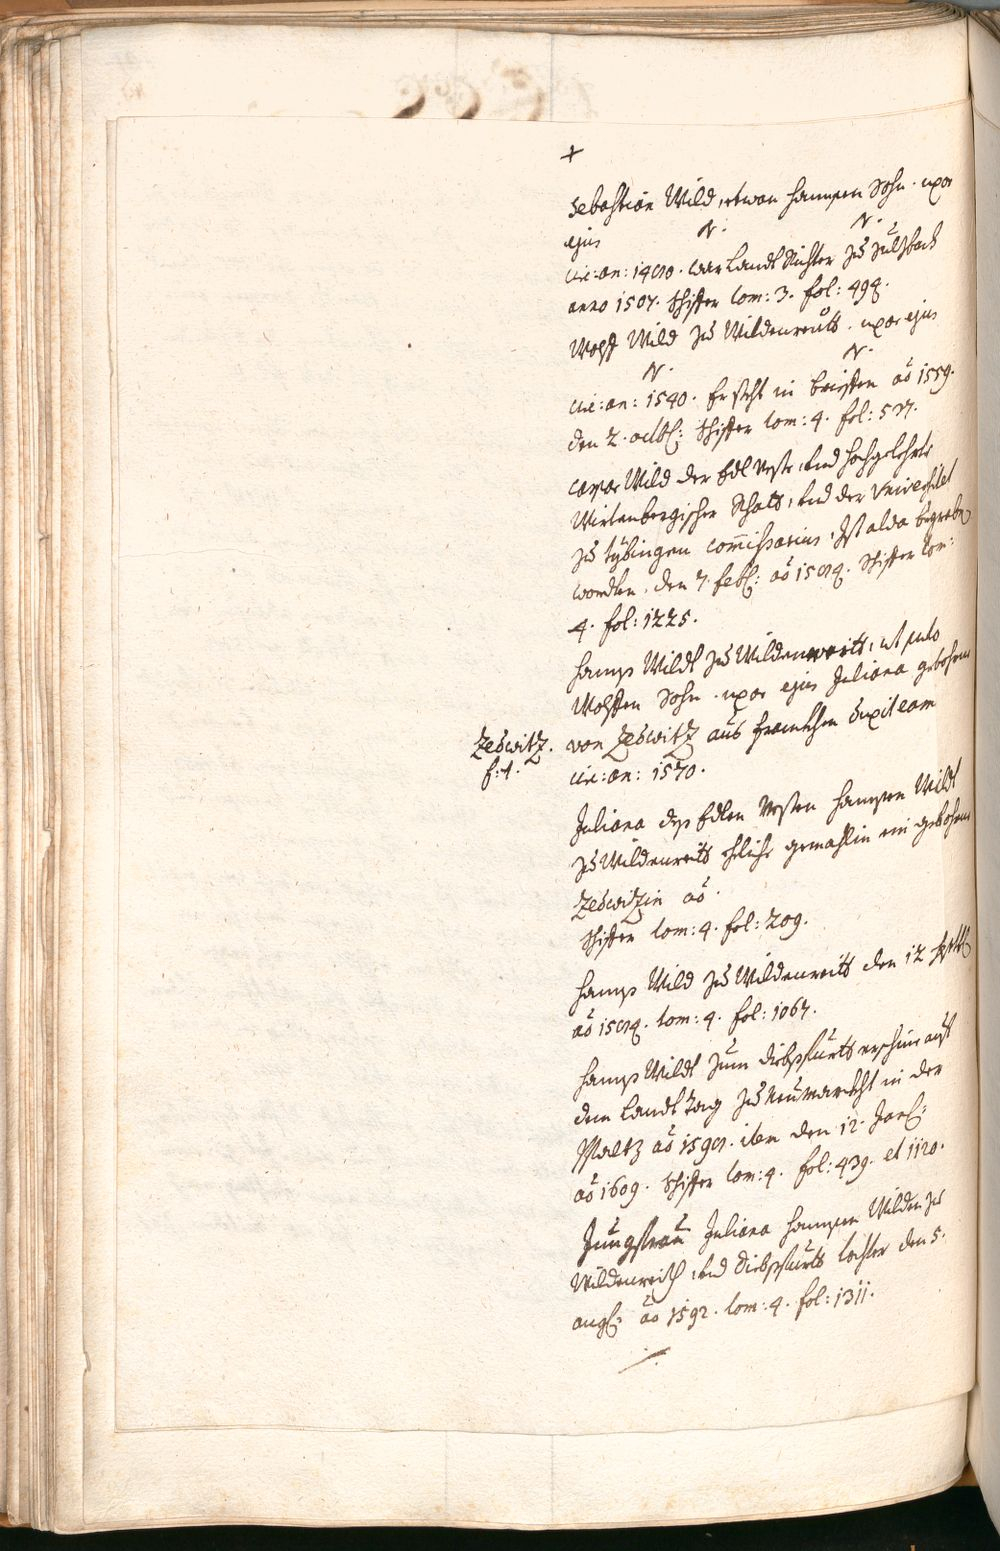 +
Sebastian Wild, etwan hannsen Sohn. uxor
ejus N. N.
circ: an: 1480. war Landt Richter zu Sulzbach
anno 1507. Schiffer tom: 3. fol: 498.
Wolff Wild zu Wildenreutt. uxor ejus
N. N.
circ: an: 1540. Er steht in brieffen aō 1559.
den 2. octob: Schiffer tom: 4. fol: 527.
Caspar Wild der Edl Vest, und hochgelehrte
Wirtenbergischer Rhatt, und der Universitet
zu tybingen commissarius, Ist alda begraben
wordten. den 7. feb: aō 1588. Schiffer tom:
4. fol: 1225.
hanns Wildt zu Wildenreitt, ut puto
Wolffen Sohn. uxor ejus Juliana gebohrne
von Zedwitz aus franckhen duxit eam
circ: an: 1570.
Zedwitz.
f: 1.
Juliana dess Edlen Vesten hannsen Wildt
zu Wildenreitt ehliche gemahlin ein gebohrne
Zedwitzin aō.
Schiffer tom: 4. fol: 209.
hanns Wild zu Wildenreitt den 12
aō 1588. tom: 4. fol: 1067.
hanns Wildt zum diebssfurtt erschine auf
dem Landt Tag zu Neumarckht in der
Pfaltz aō 1598. item den 12. Jan:
aō 1609. Schiffer tom: 4. fol: 439. et 1120.
Jungfrau Juliana hannsen Wilden zu
Wildenreith, und diebssfurtt tochter den 5.
aug: aō 1592. tom: 4. fol: 1311.